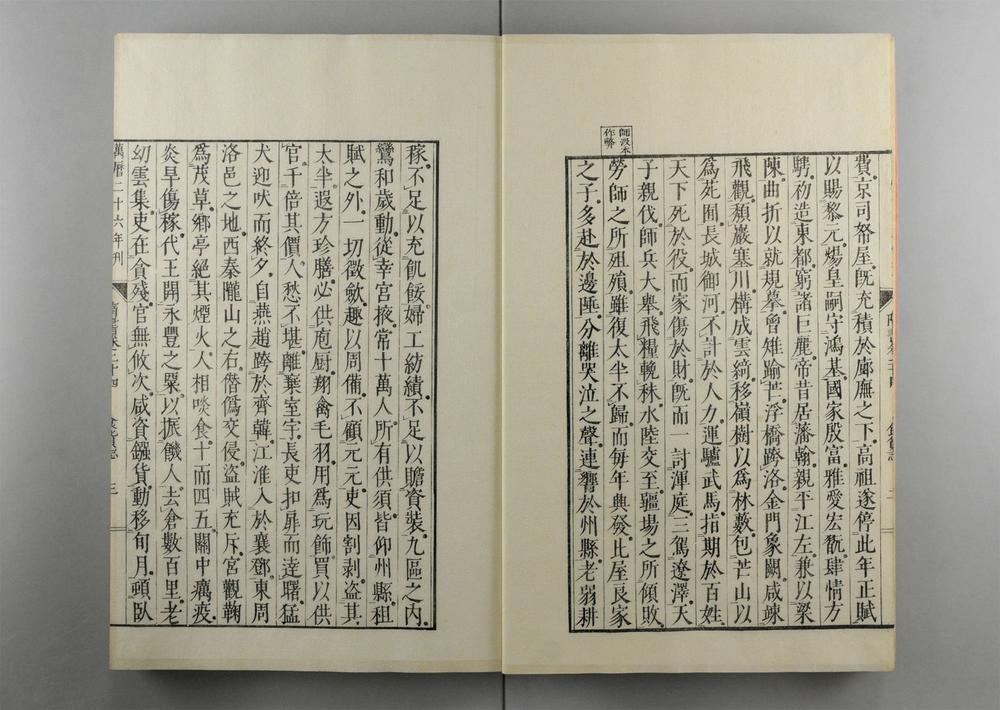 師汲本
作幣
費京司帑屋旣充積於廊廡之下高祖遂停此年正賦
以賜黎元煬皇嗣守鴻基國家殷富雅愛宏翫肆情方
騁初造東都窮諸巨麗帝昔居藩翰親平江左兼以梁
陳曲折以就規摹曾雉踰芒浮橋跨洛金門象闕咸竦
飛觀頹巖塞川構成雲綺移嶺樹以爲林藪包芒山以
爲苑囿長城御河不計於人力運驢武馬指期於百姓
天下死於役而家傷於財旣而一討渾庭三駕遼澤天
子親伐師兵大舉飛糧輓秣水陸交至疆場之所傾敗
勞師之所殂殞雖復太半不歸而每年興發比屋良家
之子多赴於邊陲分離哭泣之聲連響於州縣老弱耕
稼不足以充飢餒婦工紡績不足以贍資裝九區之内
鸞和歲動從幸宮掖常十萬人所有供須皆仰州縣租
賦之外一切徵斂趣以周備不顧元元吏因割剥盜其
太半遐方珍膳必供庖厨翔禽毛羽用爲玩飾買以供
官千倍其價人愁不堪離棄室宇長吏扣扉而達曙猛
犬迎吠而終夕自燕趙跨於齊韓江淮入於襄鄧東周
洛邑之地西秦隴山之右僭僞交侵盜賊充斥宮觀鞠
爲茂草鄉亭絕其煙火人相啖食十而四五關中癘疫
炎旱傷稼代王開永豐之粟以振饑人去倉數百里老
幼雲集吏在貪殘官無攸次咸資鏹貨動移旬月頭臥
萬曆二十六年刊 三